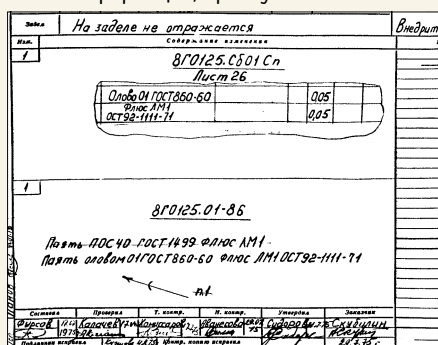 Задел На заделе не отражается Внедрит
Изм. Содержание изменения
1
8Г0125.Сб01 Сп
Лист 26
Олово 01 ГОСТ860-60 0,05
Флюс ЛМ1
ОСТ92-1111-71 0,05
1
8Г0125.01-86
Паять ПОС40 ГОСТ1499 флюс ЛМ1
Паять оловом 01 ГОСТ860-60 флюс ЛМ1 ОСТ92-1111-71
п.1
Составил Проверил Т. контр. Н. контр. Утвердил Заказчик
Фирсов Калачев Сидоров
1975
Подлинник исправил Контр. копию исправил